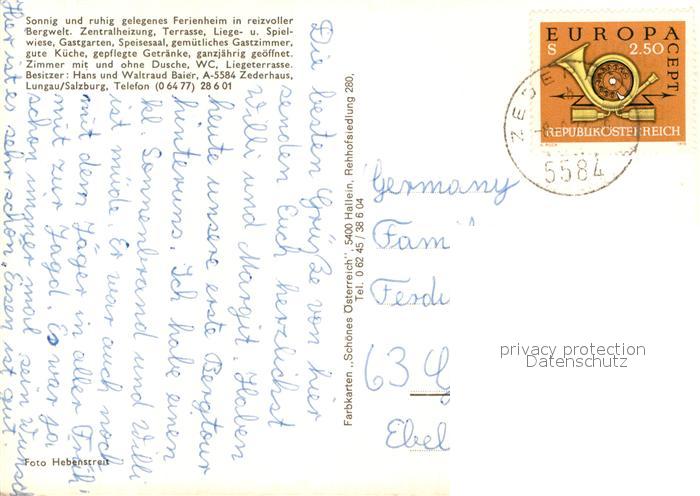 Sonnig und ruhig gelegenes Ferienheim in reizvoller
Bergwelt. Zentralheizung, Terrasse, Liege- u. Spiel-
wiese, Gastgarten, Speisesaal, gemütliches Gastzimmer,
gute Küche, gepflegte Getränke, ganzjährig geöffnet.
Zimmer mit und ohne Dusche, WC, Liegeterrasse.
Besitzer: Hans und Waltraud Baier, A-5584 Zederhaus,
Lungau/Salzburg, Telefon (0 64 77) 28 6 01
Die besten Grüße von hier
senden Euch herzlichst
Willi und Margit. Haben
heute unsere erste Bergtour
hinter uns. Ich habe einen
kl. Sonnenbrand und Willi
ist müde. Er war auch noch
mit dem Jäger in aller Früh
mit zur Jagd. Es war ja
schon immer mal sein Wunsch
Hier ist es sehr schön, Essen ist gut.
Foto Hebenstreit
Farbkarten „Schönes Österreich", 5400 Hallein, Rehhofsiedlung 280,
Tel. 0 62 45 / 38 6 04
EUROPA
CEPT
S 2.50
REPUBLIK ÖSTERREICH
5584
Germany
Fam
Ferdi
63
Ebel
privacy protection
Datenschutz